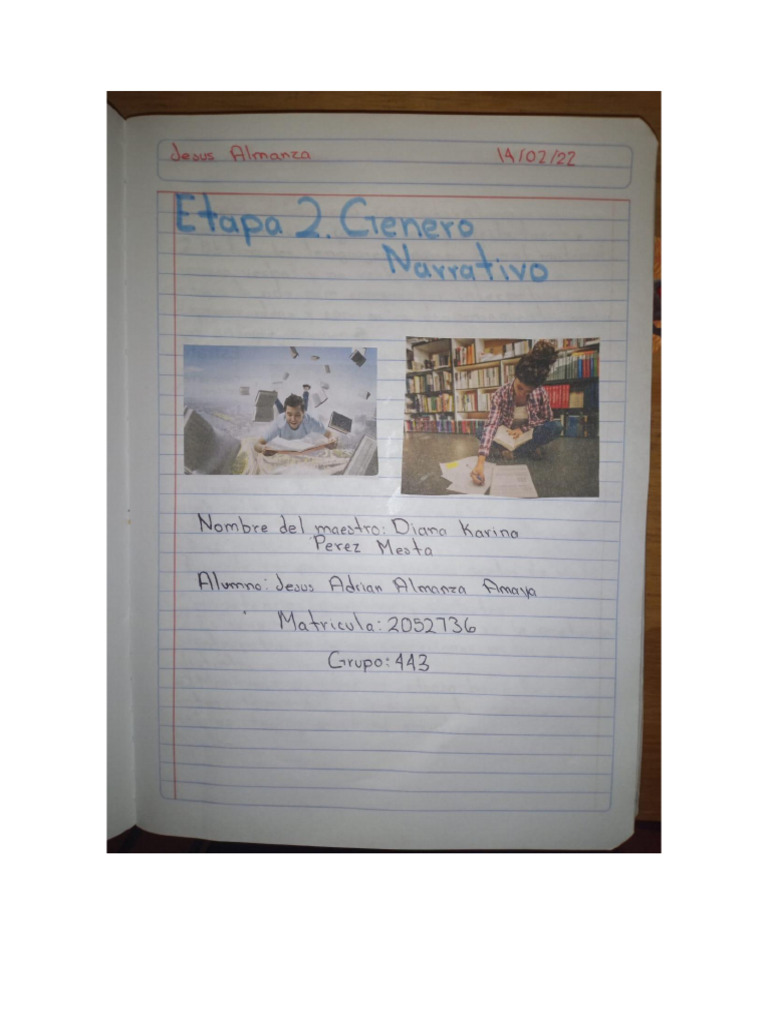 Jesus Almanza 14/02/22
Etapa 2. Genero
Narrativo
Nombre del maestro: Diana Karina
Perez Mesta
Alumno: Jesus Adrian Almanza Amaya
Matricula: 2052736
Grupo: 443